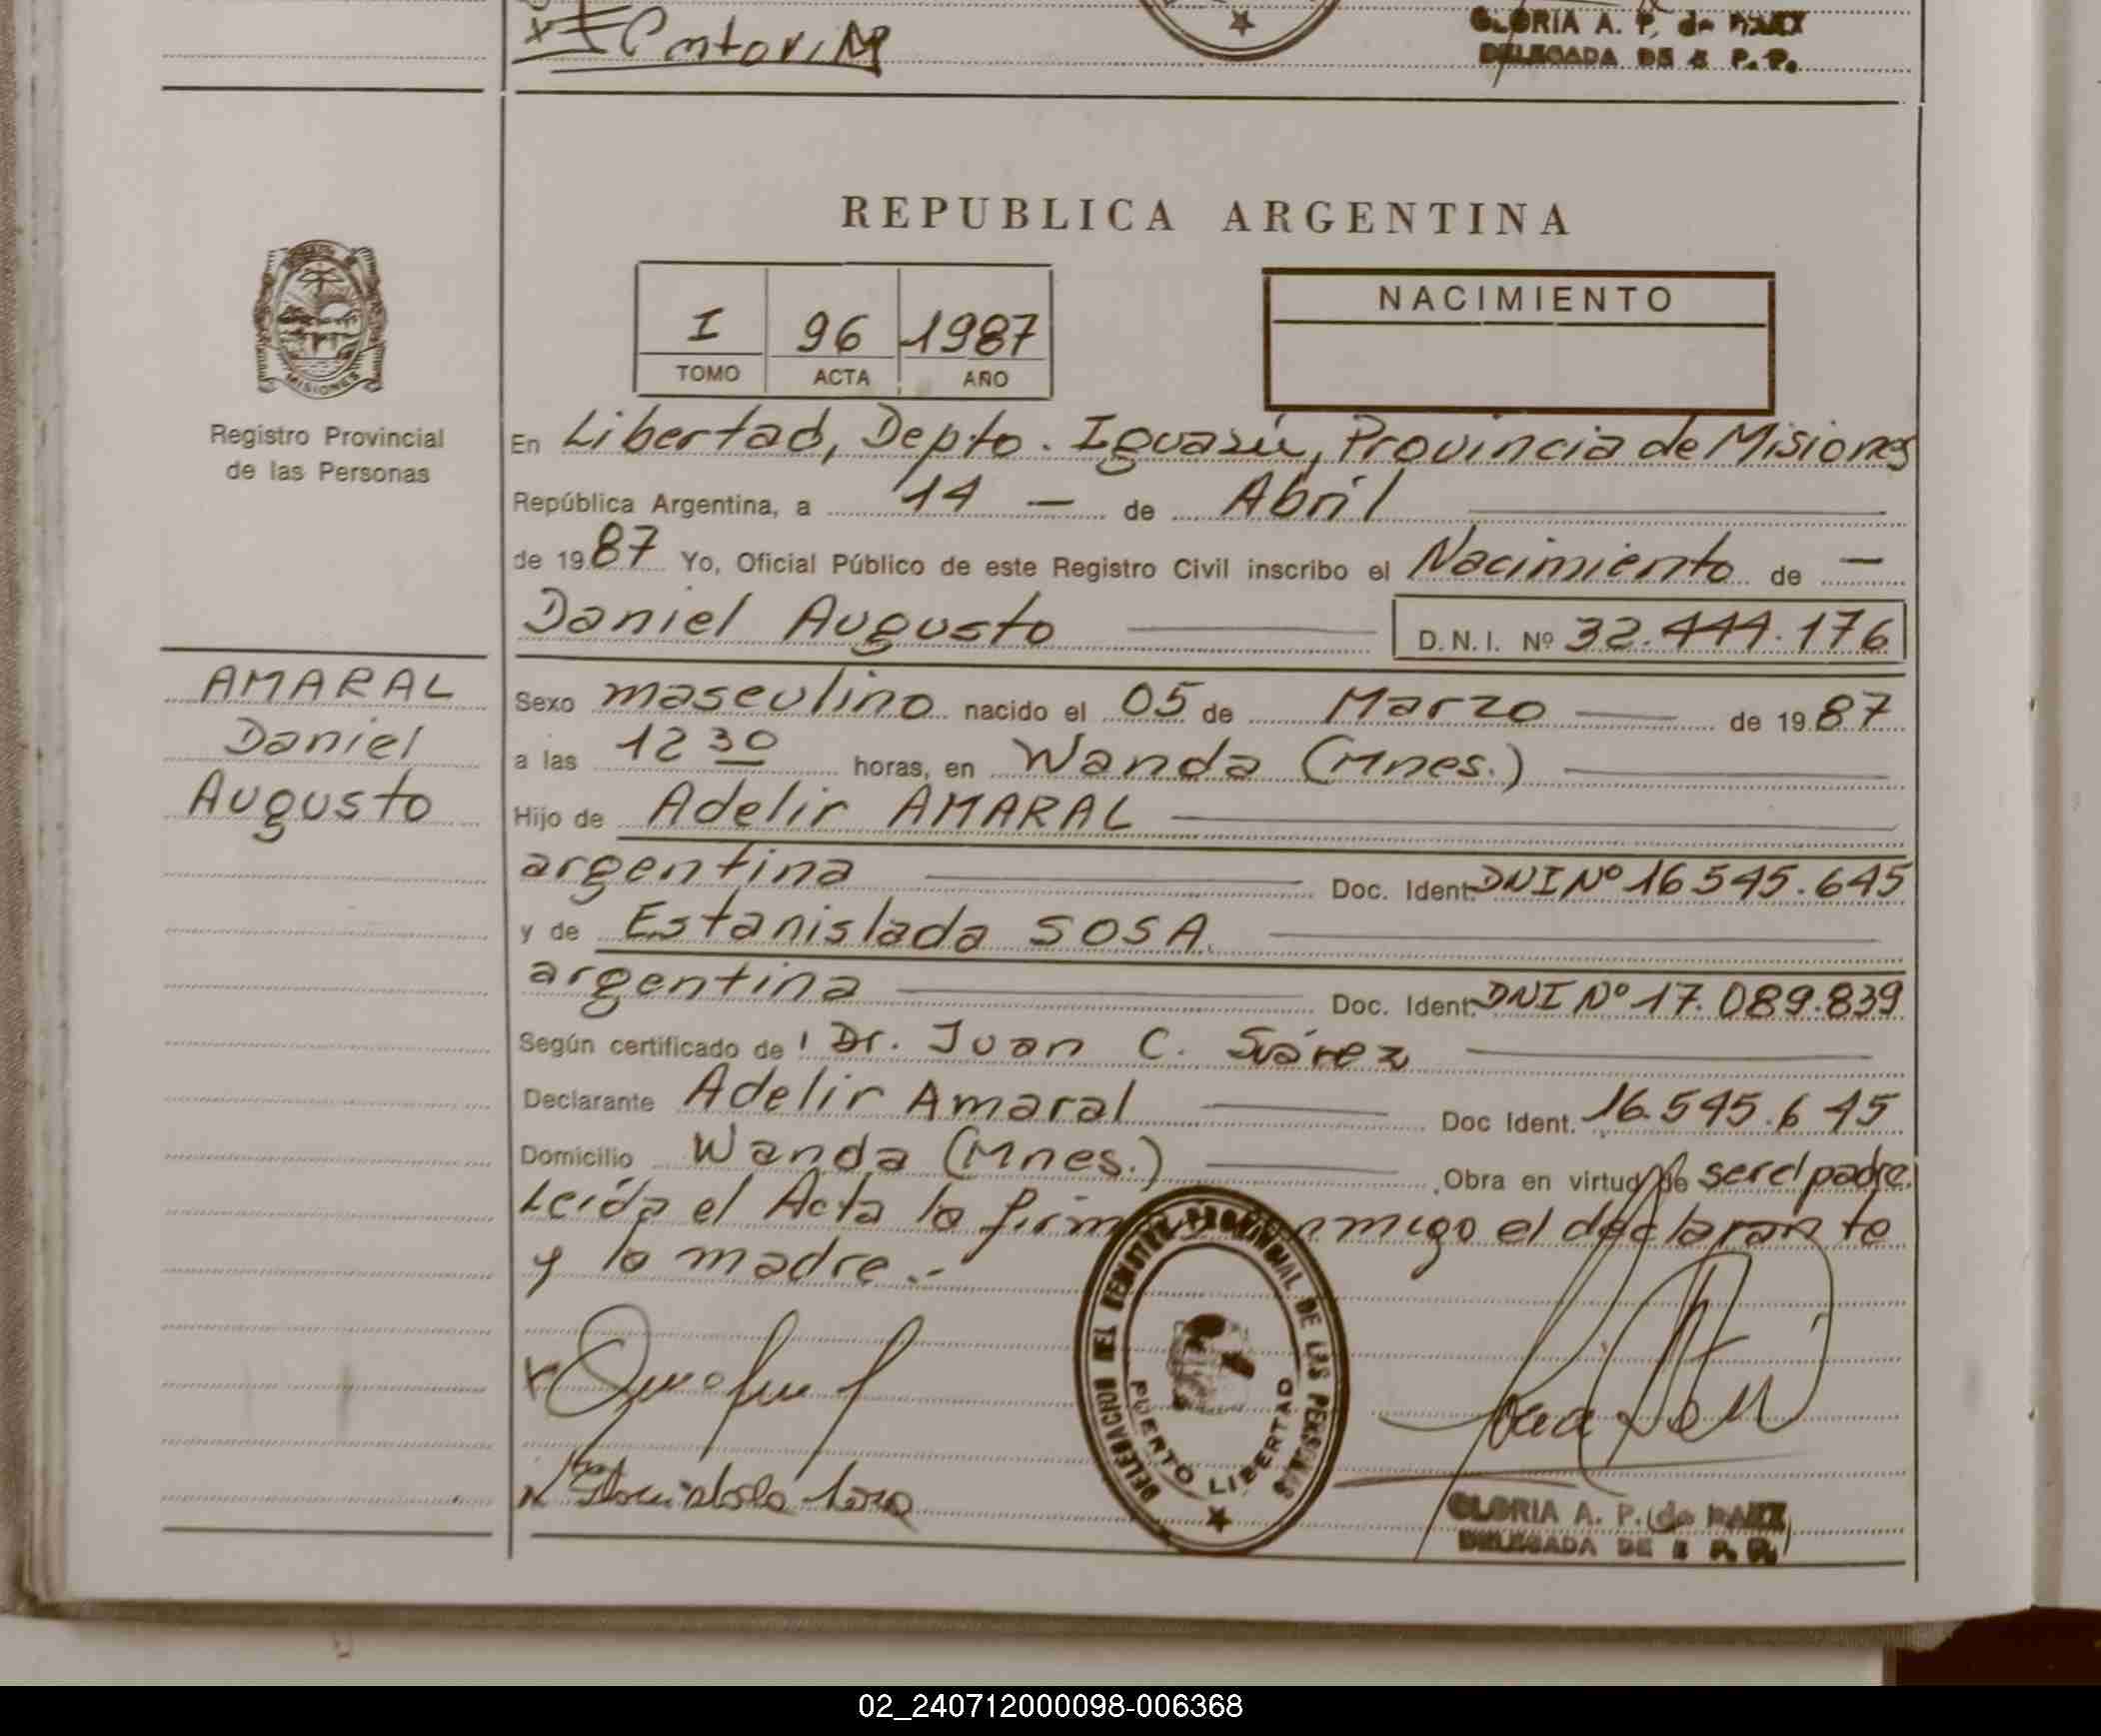 GLORIA A. P. de
DELEGADA DE P. P.
REPUBLICA ARGENTINA
I 96 1987
TOMO ACTA AÑO
NACIMIENTO
MISIONES
Registro Provincial
de las Personas
En Libertad, Depto. Iguazú, Provincia de Misiones
República Argentina, a 14 — de Abril
de 1987 Yo, Oficial Público de este Registro Civil inscribo el Nacimiento de —
Daniel Augusto D.N.I. Nº 32.444.176
AMARAL
Daniel
Augusto
Sexo masculino nacido el 05 de Marzo — de 1987
a las 12 30 horas, en Wanda (Mnes.)
Hijo de Adelir AMARAL
argentina Doc. Ident. DNI Nº 16.545.645
y de Estanislada SOSA
argentina Doc. Ident. DNI Nº 17.089.839
Según certificado de Dr. Juan C. Suárez
Declarante Adelir Amaral Doc Ident. 16.545.645
Domicilio Wanda (Mnes.) Obra en virtud de ser el padre.
Leída el Acta la el declarante
y la madre.-
DELEGACION DEL REGISTRO PROVINCIAL DE LAS PERSONAS
PUERTO LIBERTAD
GLORIA A. P. de
DELEGADA DE
02_240712000098-006368